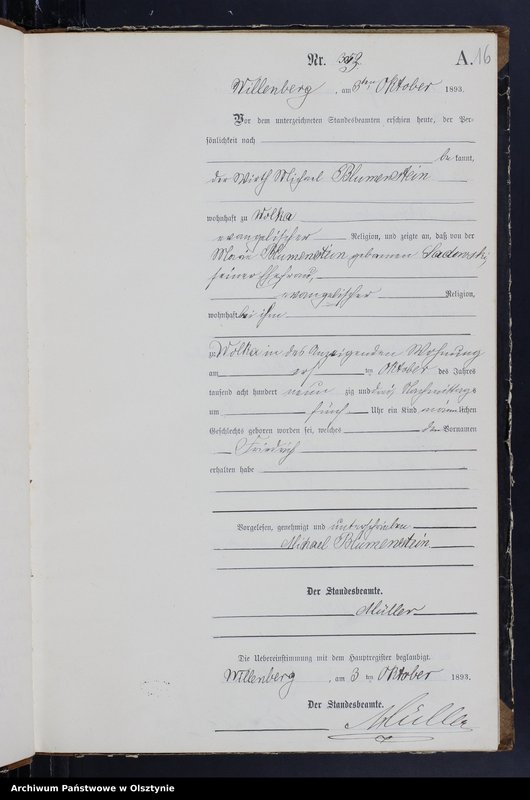 Nr. 352
A. 16
Willenberg, am 3ten Oktober 1893.
Vor dem unterzeichneten Standesbeamten erschien heute, der Per-
sönlichkeit nach
be kannt,
der Wirth Michael Blumenstein
wohnhaft zu Wolka
evangelischer Religion, und zeigte an, daß von der
Marie Blumenstein geborenen Sadowski,
seiner Ehefrau,
evangelischer Religion,
wohnhaft bei ihm
zu Wolka in des Anzeigenden Wohnung
am ersten Oktober des Jahres
tausend acht hundert neun zig und drei Nachmittags
um fünf Uhr ein Kind männlichen
Geschlechts geboren worden sei, welches den Vornamen
Friedrich
erhalten habe
Vorgelesen, genehmigt und unterschrieben
Michael Blumenstein
Der Standesbeamte.
Müller
Die Uebereinstimmung mit dem Hauptregister beglaubigt.
Willenberg, am 3 ten Oktober 1893.
Der Standesbeamte.
Müller
Archiwum Państwowe w Olsztynie